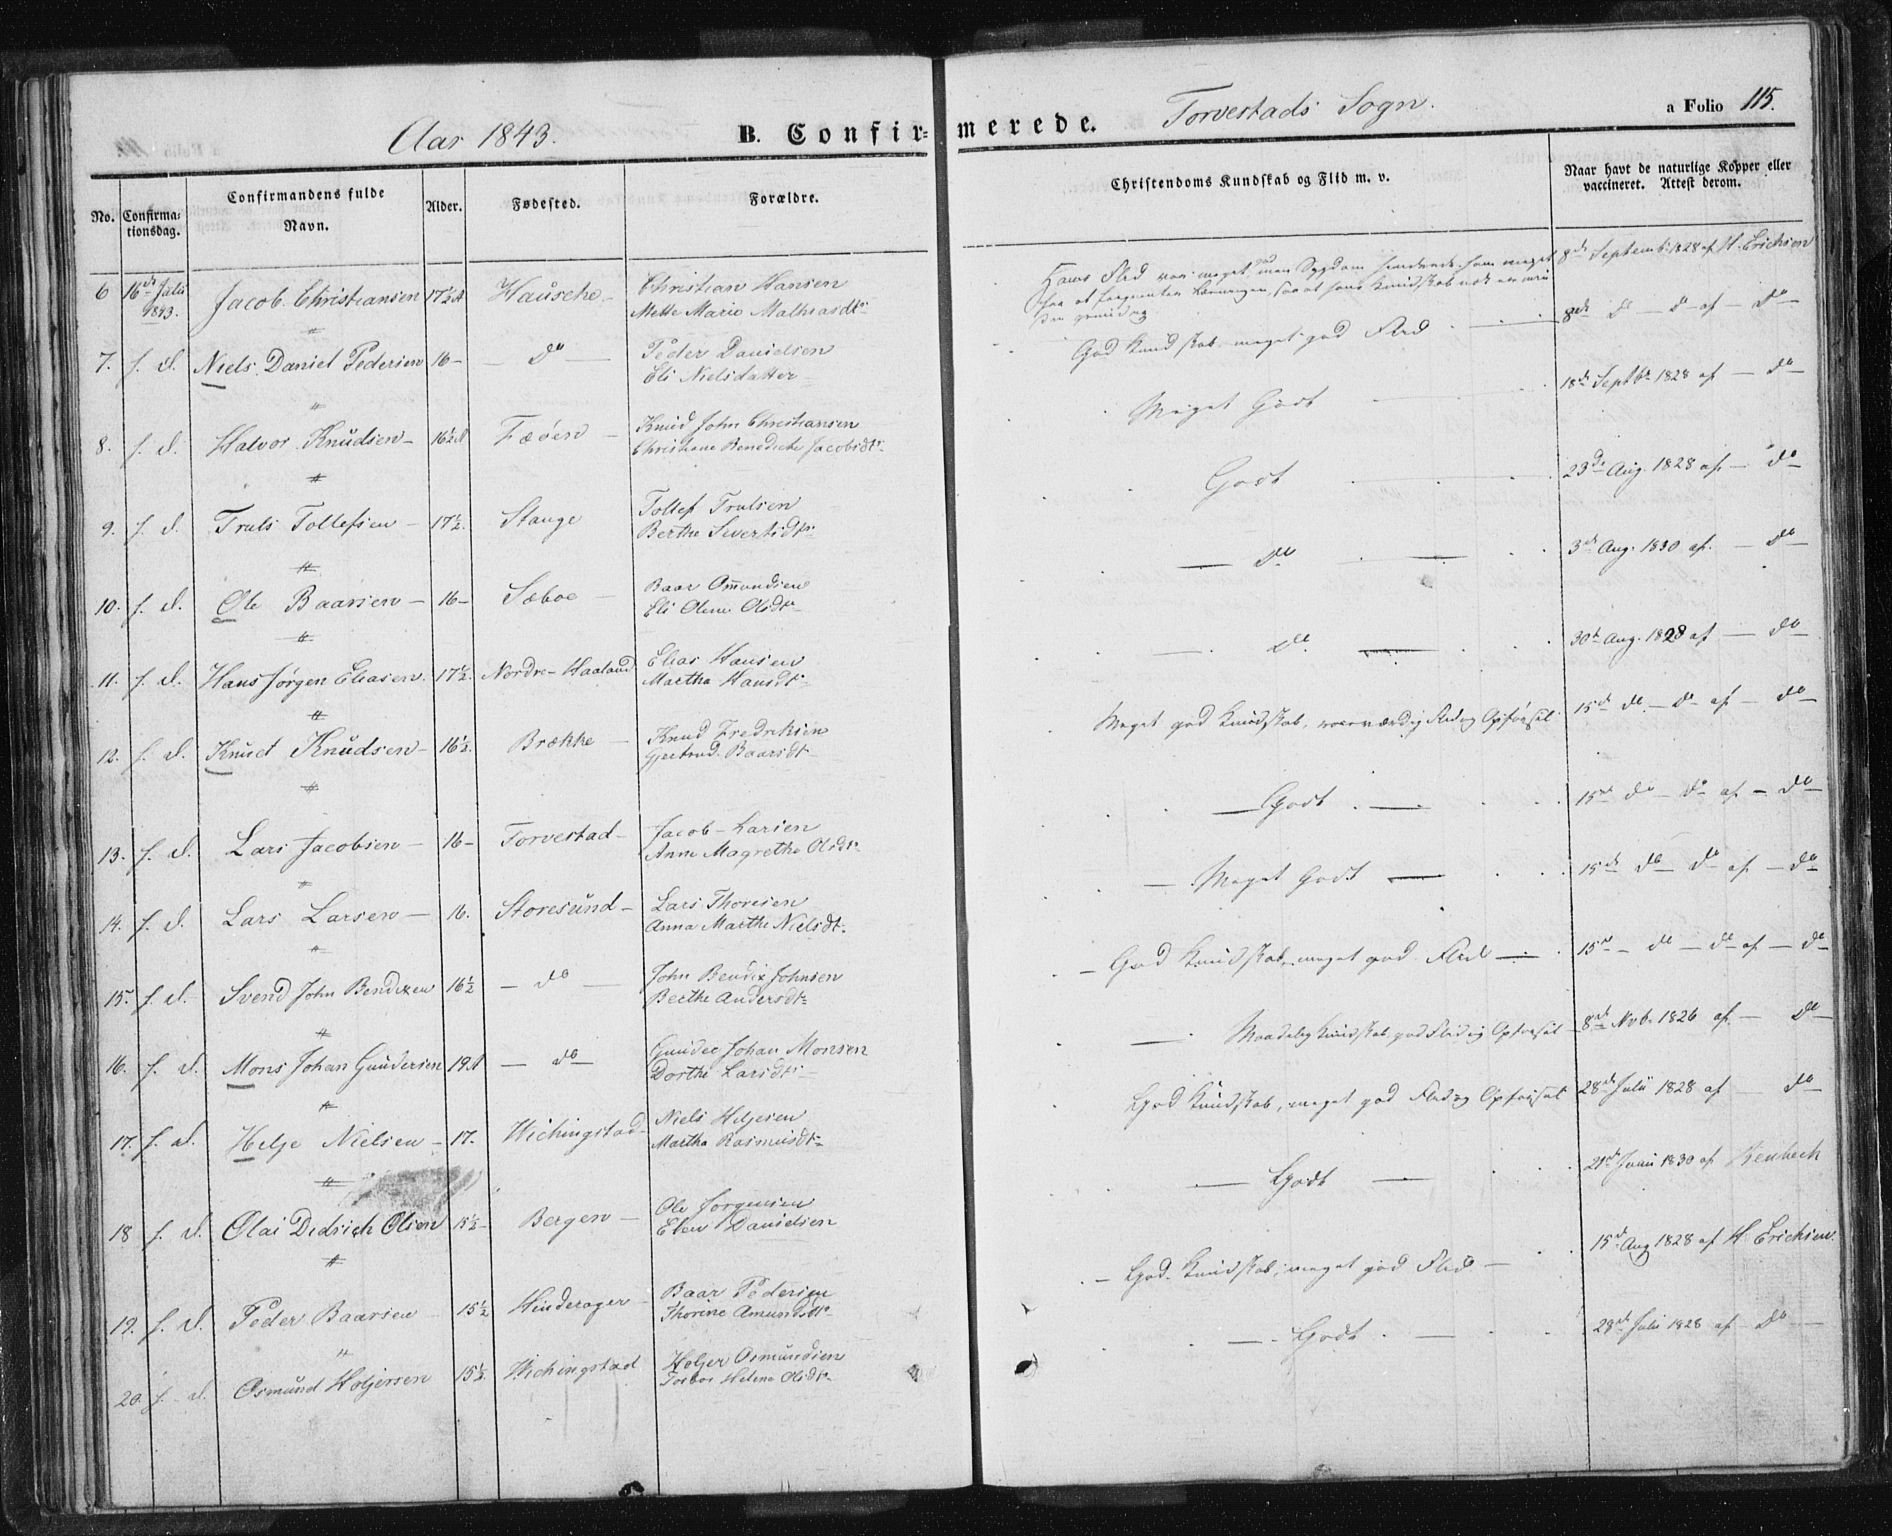 Aar 1843.
B. Confirmerede.
Torvestads Sogn.
a Folio 115.
No.
Confirmationsdag.
Confirmandens fulde
Navn.
Alder.
Fødested.
Forældre.
Christendoms Kundskab og Flid m. v.
Naar havt de naturlige Kopper eller
vaccineret. Attest derom.
6 16de Juli 1843. Jacob Christiansen 17½ A Hausche
Christian Hansen
Mette Marie Mathiasdtr
Hans Flid var meget, men Sygdom hindrede ham meget
8de Septembr 1828 af H. Erichsen
7. s. d. Niels Daniel Pedersen 16 — do —
Peder Danielsen
Eli Nielsdatter
God Kundskab, meget god Flid
8de do — do af — do —
8. s. d. Halvor Knudsen — 16½ A Feøen —
Knud John Christiansen
Christiane Benedicte Jacobsdtr
Meget Godt
18de Septbr 1828 af — do —
9. s. d. Truls Tollefsen — 17½. Stange
Tollef Trulsen
Berthe Severtsdtr
Godt
23de Aug. 1828 af — do —
10. s. d. Ole Baarsen — 16 — Sæboe —
Baar Omundsen
Eli Olene Olsdtr
— do — 
3de Aug. 1830 af. — do —
11. s. d. Hans Jørgen Eliasen. 17½. Nordre-Haaland
Elias Hansen
Martha Hansdtr
— do. —
30te Aug. 1828 af — do —
12. s. d. Knud Knudsen — 16½. Brække —
Knud Fredriksen
Gjertrud Baarsdtr
Meget god Kundskab, roesværdig Flid og Opførsel.
15de do. — do af — do —
13. s. d. Lars Jacobsen — 16 — Torvestad —
Jacob Larsen
Anne Magrethe Olsdtr
— Godt. —
15de do — do af — do —
14. s. d. Lars Larsen — 16. Storesund —
Lars Thoresen
Anna Marthe Nielsdtr.
— Meget Godt —
15de do — do af — do
15. s. d. Svend John Bendixen 16½ — do —
John Bendix Johnsen
Berthe Andersdtr
— God Kundskab, meget god Flid —
15de — do — do af — do
16. s. d. Mons Johan Gundersen 19 A — do —
Gunder Johan Monsen
Dorthe Larsdtr
— Maadelig Kundskab, god Flid og Opførsel —
8de Nvb. 1826 af — do —
17. s. d. Helje Nielsen — 17. Wichingstad
Niels Heljesen
Martha Rasmusdtr
God Kundskab, meget god Flid og Opførsel
28de Juli 1828 af do —
18 s. d. Olai Didrich Olsen 15½ — Bergen —
Ole Jørgensen
Elen Danielsen
— Godt —
21de Juni 1830 af
19. s. d. Peder Baarsen 15½ Hinderager —
Baar Pedersen
Thorine Amundsdtr
— God Kundskab, meget god Flid —
15de Aug 1828 af H. Erichsen.
20. s. d. Osmund Holjersen 15½. Wichingstad
Holjer Osmundsen
Torbor Helene Olsdtr
— Godt. —
28de Juli 1828 af — do —